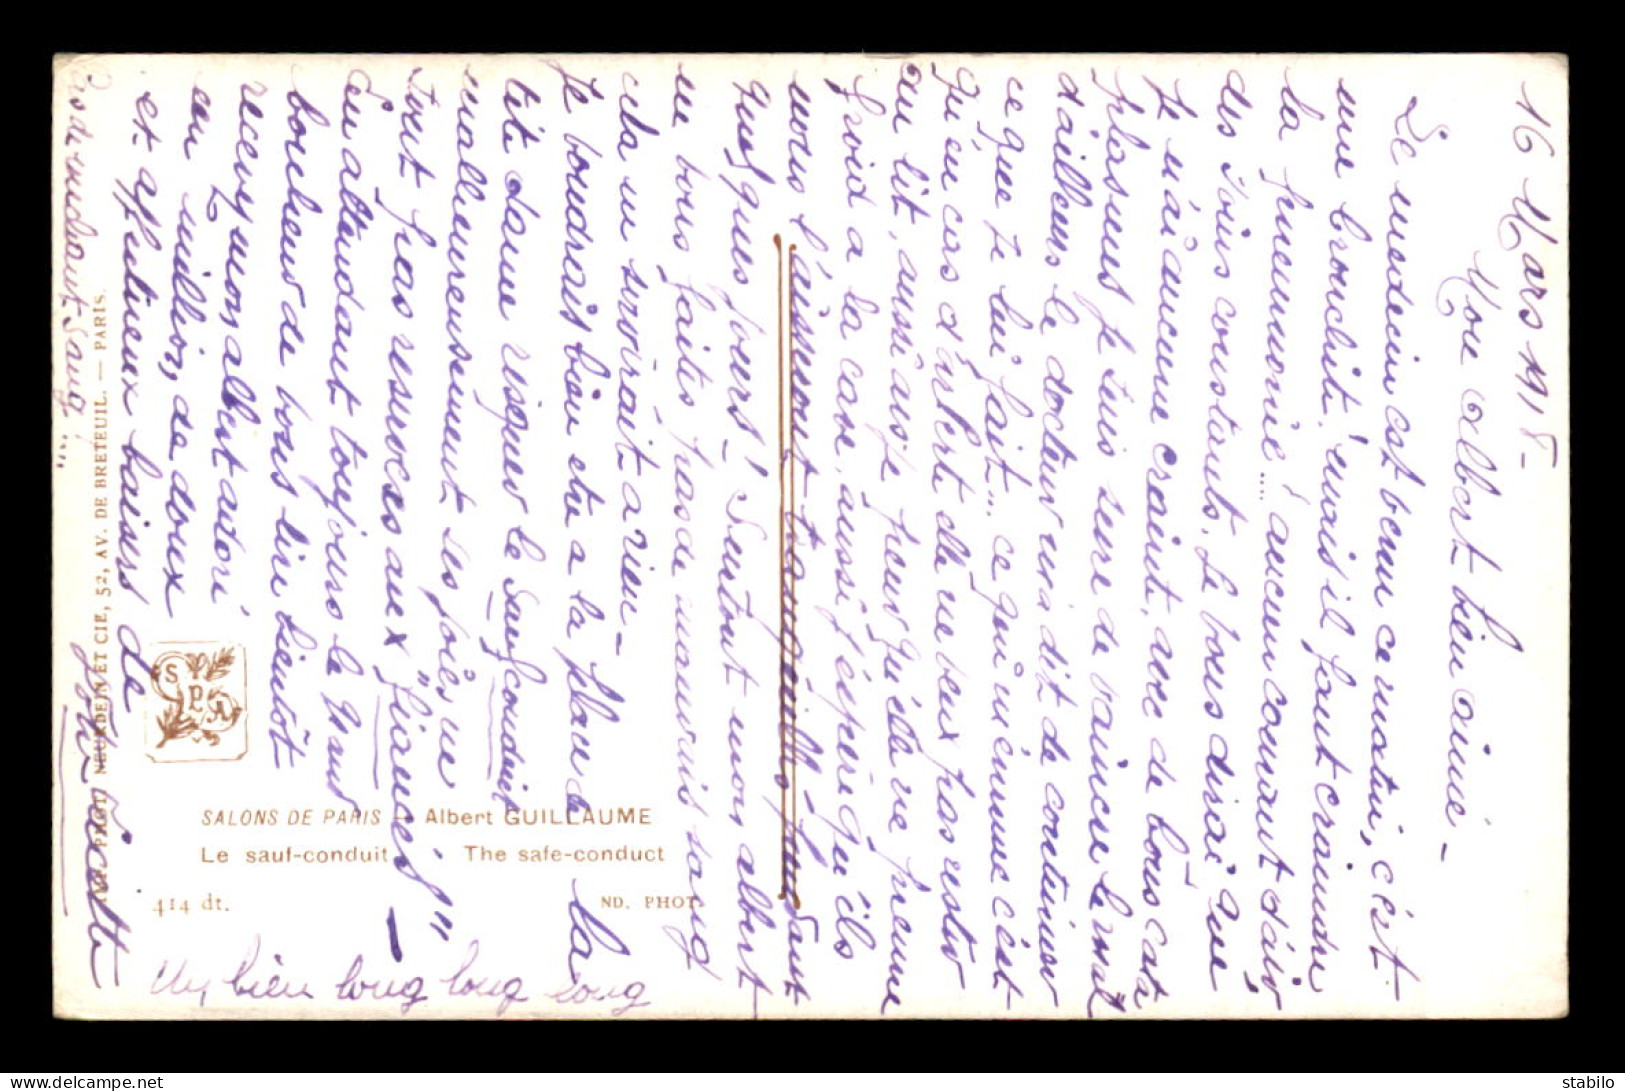 16 Mars 1918-
Mon albert bien aimé-
Le medecin est venu ce matin, c'est
une bronchite! mais il faut craindre
la pneumonie!..... aucun courant d'air,
des soins constants. Je vous dirai que
je n'ai aucune crainte, avec de bons cata
plasmes je suis sure de vaincre le mal
d'ailleurs le docteur m'a dit de continuer
ce que je lui fait... ce qui m'ennuie c'est
qu'en cas d'alerte elle ne veux pas rester
au lit, aussi ai-je peur qu'elle ne prenne
froid a la cave, aussi j'espère qu'ils
nous laisseront tranquilles pendant
quelques jours! Surtout mon albert
ne vous faites pas de mauvais sang
cela ne servirait a rien-
Je voudrais bien etre a la place de la
tite dame risquer le Sauf conduit
malheureusement ses joies ne
sont pas reservées aux "fiancés"
En attendant toujours le grand
bonheur de vous lire bientôt
recevez mon albert adoré
un million de doux
et affectueux baisers de
votre Lisette
Un bien long long long
SALONS DE PARIS — Albert GUILLAUME
Le sauf-conduit The safe-conduct
414 dt. ND. PHOT.
SPA
IMP. PHOT. NEURDEIN ET CIE, 52, AV. DE BRETEUIL. — PARIS.